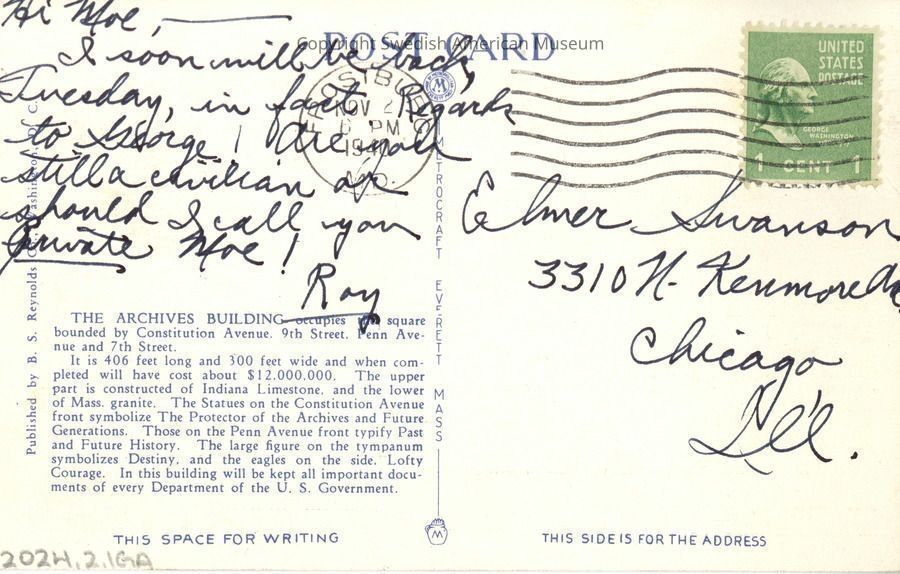 Hi Moe,
I soon will be back,
Tuesday, in fact. Regards
to George! Are you
still a civilian or
should I call you
private Moe!
Roy
POST CARD
Copyright Swedish American Museum
FROSTBURG
NOV 2
6 PM
19
MD.
UNITED
STATES
POSTAGE
GEORGE
WASHINGTON
1 CENT 1
Elmer Swanson
3310 N. Kenmore Av
Chicago
Ill.
Published by B. S. Reynolds Co., Washington, D. C.
METROCRAFT EVERETT MASS
THE ARCHIVES BUILDING occupies the square
bounded by Constitution Avenue. 9th Street. Penn Ave-
nue and 7th Street.
It is 406 feet long and 300 feet wide and when com-
pleted will have cost about $12.000.000. The upper
part is constructed of Indiana Limestone, and the lower
of Mass. granite. The Statues on the Constitution Avenue
front symbolize The Protector of the Archives and Future
Generations. Those on the Penn Avenue front typify Past
and Future History. The large figure on the tympanum
symbolizes Destiny, and the eagles on the side, Lofty
Courage. In this building will be kept all important docu-
ments of every Department of the U. S. Government.
THIS SPACE FOR WRITING
M
THIS SIDE IS FOR THE ADDRESS
2024.2.1GA